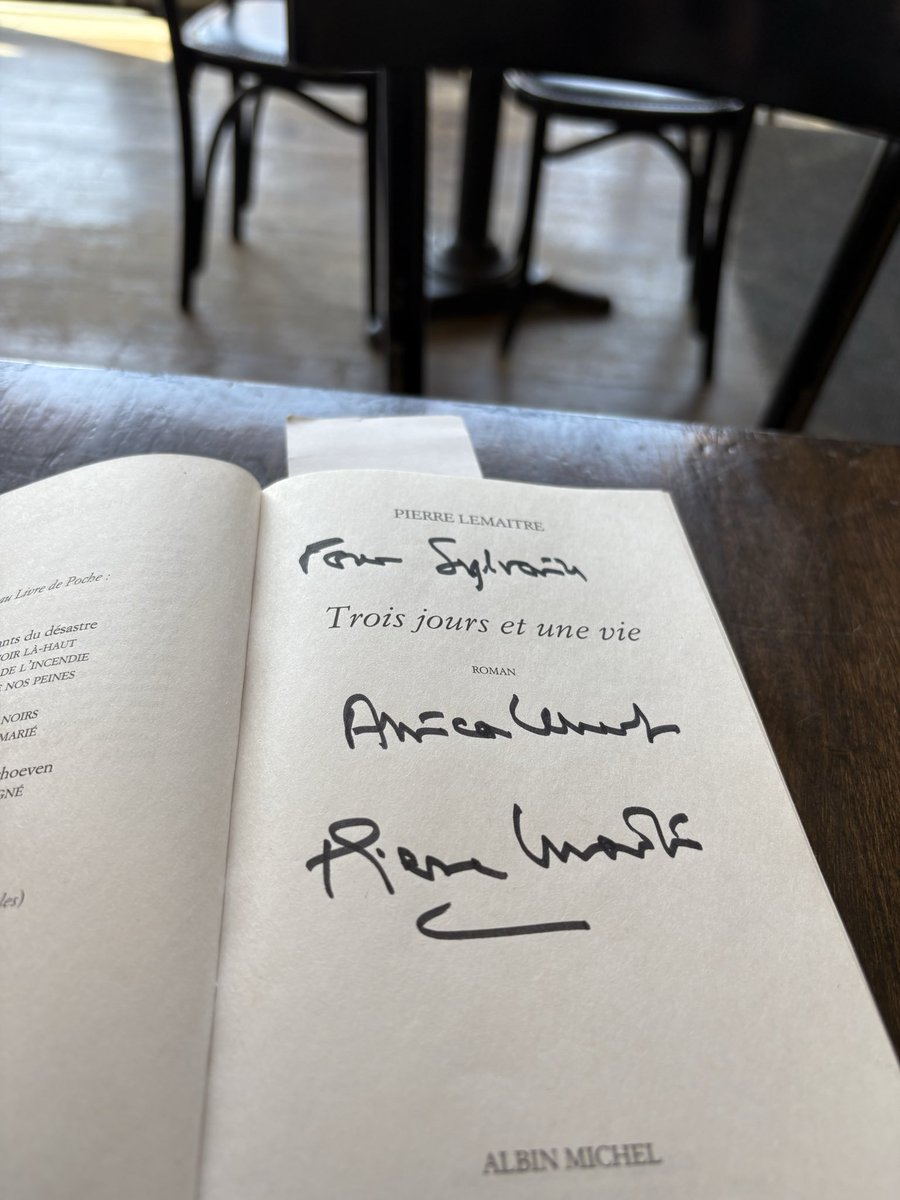 au Livre de Poche :
ants du désastre
OIR LÀ-HAUT
DE L'INCENDIE
NOS PEINES
NOIRS
MARIÉ
hoeven
GNÉ
les)
PIERRE LEMAITRE
Pour Sylvain
Trois jours et une vie
ROMAN
Amicalement
Pierre Lemaitre
ALBIN MICHEL